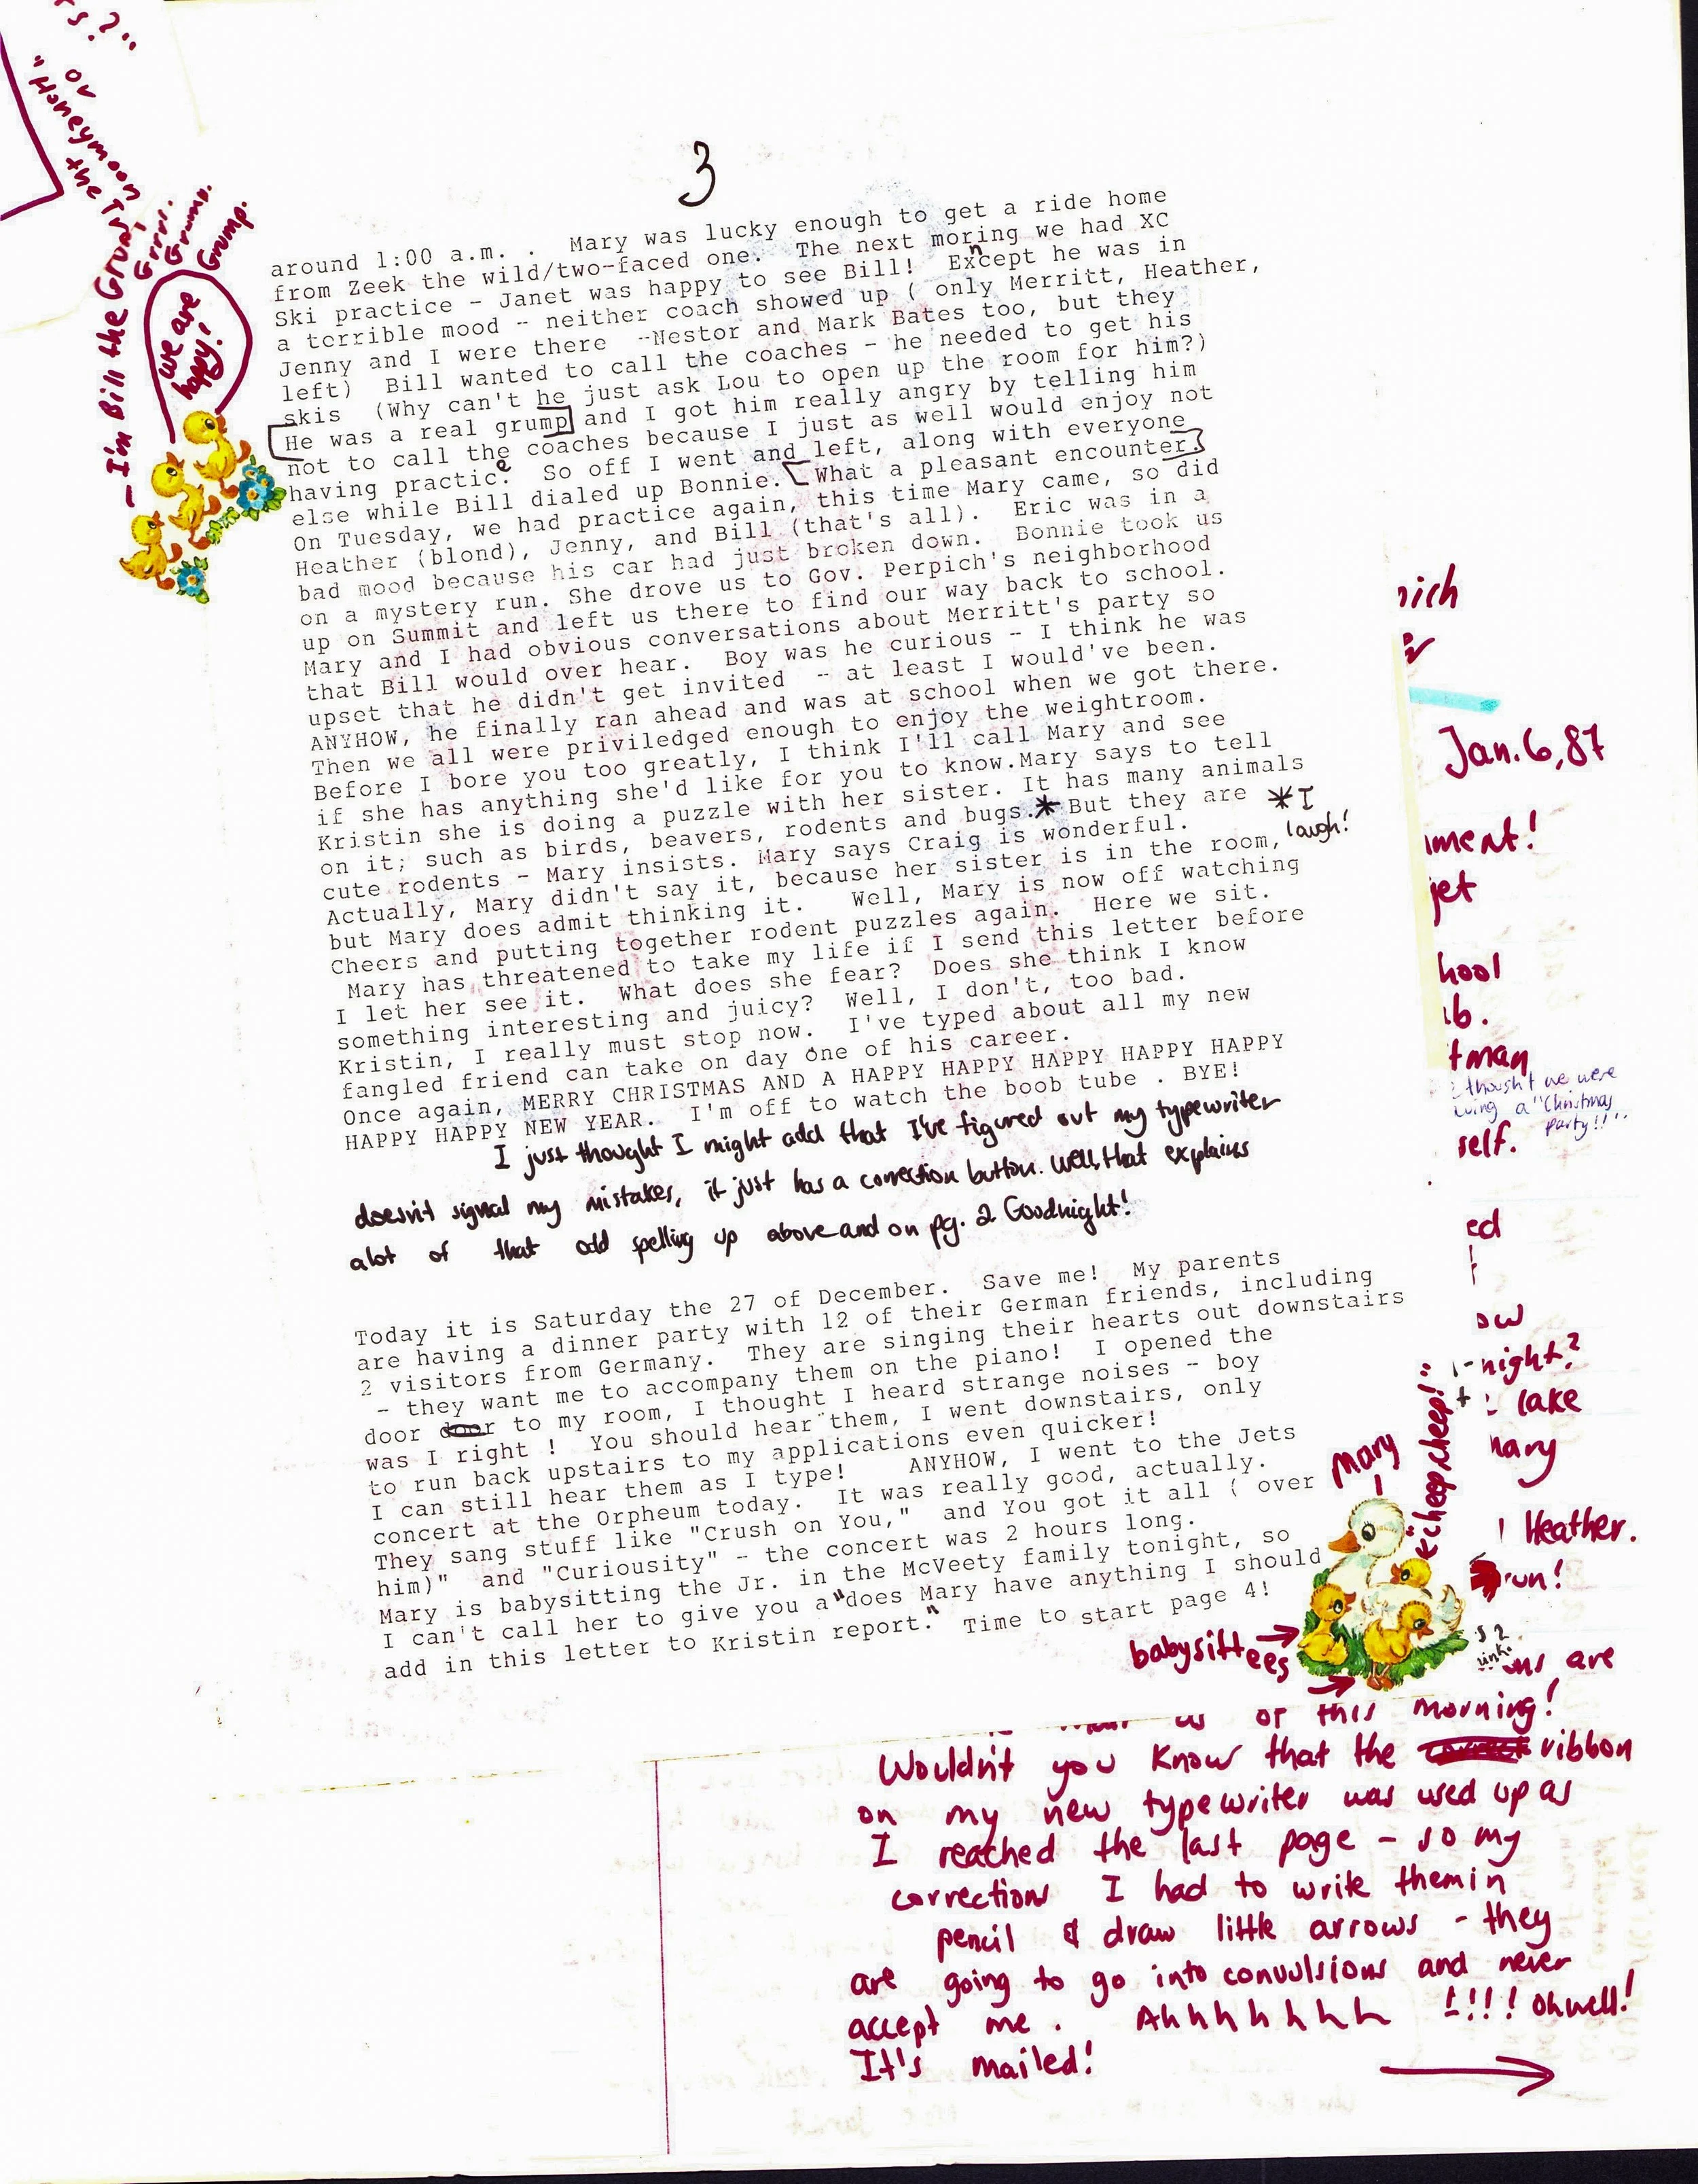 3
around 1:00 a.m. .   Mary was lucky enough to get a ride home
from Zeek the wild/two-faced one.  The next moring we had XC
n
Ski practice - Janet was happy to see Bill!  Except he was in
a terrible mood - neither coach showed up ( only Merritt, Heather,
Jenny and I were there  --Nestor and Mark Bates too, but they
left)  Bill wanted to call the coaches - he needed to get his
skis  (Why can't he just ask Lou to open up the room for him?)
He was a real grump and I got him really angry by telling him
not to call the coaches because I just as well would enjoy not
having practic.  So off I went and left, along with everyone
e
else while Bill dialed up Bonnie. What a pleasant encounter!
On Tuesday, we had practice again, this time Mary came, so did
Heather (blond), Jenny, and Bill (that's all).  Eric was in a
bad mood because his car had just broken down.  Bonnie took us
on a mystery run. She drove us to Gov. Perpich's neighborhood
up on Summit and left us there to find our way back to school.
Mary and I had obvious conversations about Merritt's party so
that Bill would over hear.  Boy was he curious - I think he was
upset that he didn't get invited  -- at least I would've been.
ANYHOW, he finally ran ahead and was at school when we got there.
Then we all were priviledged enough to enjoy the weightroom.
Before I bore you too greatly, I think I'll call Mary and see
if she has anything she'd like for you to know.Mary says to tell
Kristin she is doing a puzzle with her sister. It has many animals
on it; such as birds, beavers, rodents and bugs.* But they are
* I laugh!
cute rodents - Mary insists. Mary says Craig is wonderful.
Actually, Mary didn't say it, because her sister is in the room,
but Mary does admit thinking it.   Well, Mary is now off watching
Cheers and putting together rodent puzzles again.  Here we sit.
Mary has threatened to take my life if I send this letter before
I let her see it.  What does she fear?  Does she think I know
something interesting and juicy?  Well, I don't, too bad.
Kristin, I really must stop now.  I've typed about all my new
fangled friend can take on day one of his career.
Once again, MERRY CHRISTMAS AND A HAPPY HAPPY HAPPY HAPPY HAPPY
HAPPY HAPPY NEW YEAR.  I'm off to watch the boob tube . BYE!
I just thought I might add that I've figured out my typewriter
doesn't signal my mistakes, it just has a correction button. Well, that explains
alot of that odd spelling up above and on pg. 2 Goodnight!
Today it is Saturday the 27 of December.  Save me!  My parents
are having a dinner party with 12 of their German friends, including
2 visitors from Germany.  They are singing their hearts out downstairs
- they want me to accompany them on the piano!  I opened the
door door to my room, I thought I heard strange noises - boy
was I right !  You should hear them, I went downstairs, only
to run back upstairs to my applications even quicker!
I can still hear them as I type!    ANYHOW, I went to the Jets
concert at the Orpheum today.  It was really good, actually.
They sang stuff like "Crush on You,"  and You got it all ( over
him)"  and "Curiousity" - the concert was 2 hours long.
Mary is babysitting the Jr. in the McVeety family tonight, so
I can't call her to give you a "does Mary have anything I should
add in this letter to Kristin report."  Time to start page 4!
"Honeymoon
or
the
Grrr.
Grump.
Grump.
- I'm Bill the Grunt
we are
happy!
Mary
"cheep cheep!"
babysittees
Jan. 6, 87
ment!
jet
hool
thought we were
"Christmas
party!!"
self.
ed
ow
night?
lake
Heather.
run!
are
us of this morning!
Wouldn't you know that the ribbon
on my new typewriter was used up as
I reached the last page - so my
corrections I had to write them in
pencil & draw little arrows - they
are going to go into convulsions and never
accept me . Ahhhhhhh !!!! Oh well!
It's mailed!